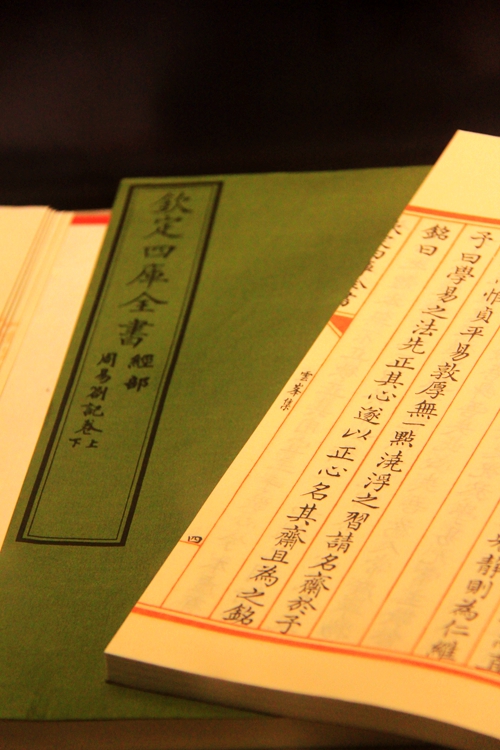 欽定四庫全書
經部
周易劄記卷上下
靜則為仁雖
貞平易敦厚無一點澆浮之習請名齋於子
子曰學易之法先正其心遂以正心名其齋且為之銘
銘曰
定四庫全書
雲峯集
四